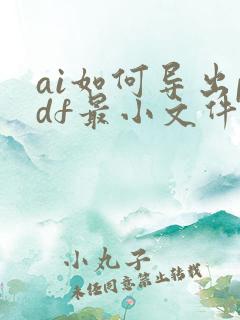 ai如何导出p
df最小文件
小丸子
未经同意禁止转载